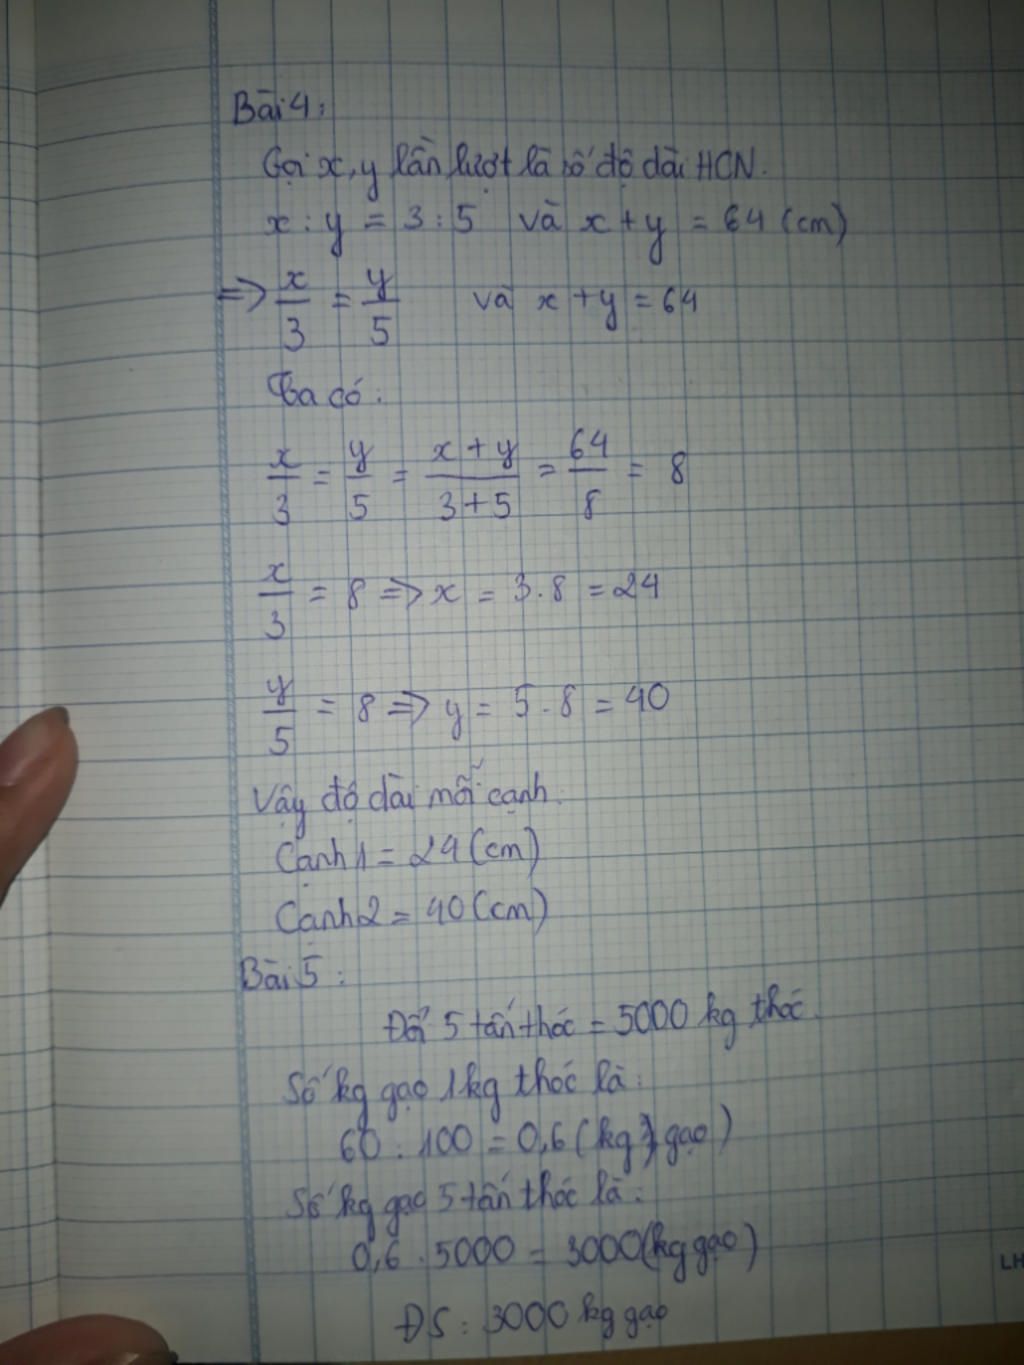 Bài 4:
Gọi x, y lần lượt là số độ dài HCN.
x : y = 3 : 5 và x + y = 64 (cm)
=> x/3 = y/5 và x + y = 64
Ta có:
x/3 = y/5 = (x + y)/(3 + 5) = 64/8 = 8
x/3 = 8 => x = 3.8 = 24
y/5 = 8 => y = 5.8 = 40
Vậy độ dài mỗi cạnh.
Cạnh 1 = 24 (cm)
Cạnh 2 = 40 (cm)
Bài 5:
Đổi 5 tấn thóc = 5000 kg thóc.
Số kg gạo 1kg thóc là:
60 : 100 = 0,6 (kg gạo)
Số kg gạo 5 tấn thóc là:
0,6 . 5000 = 3000 (kg gạo)
ĐS: 3000 kg gạo
LH